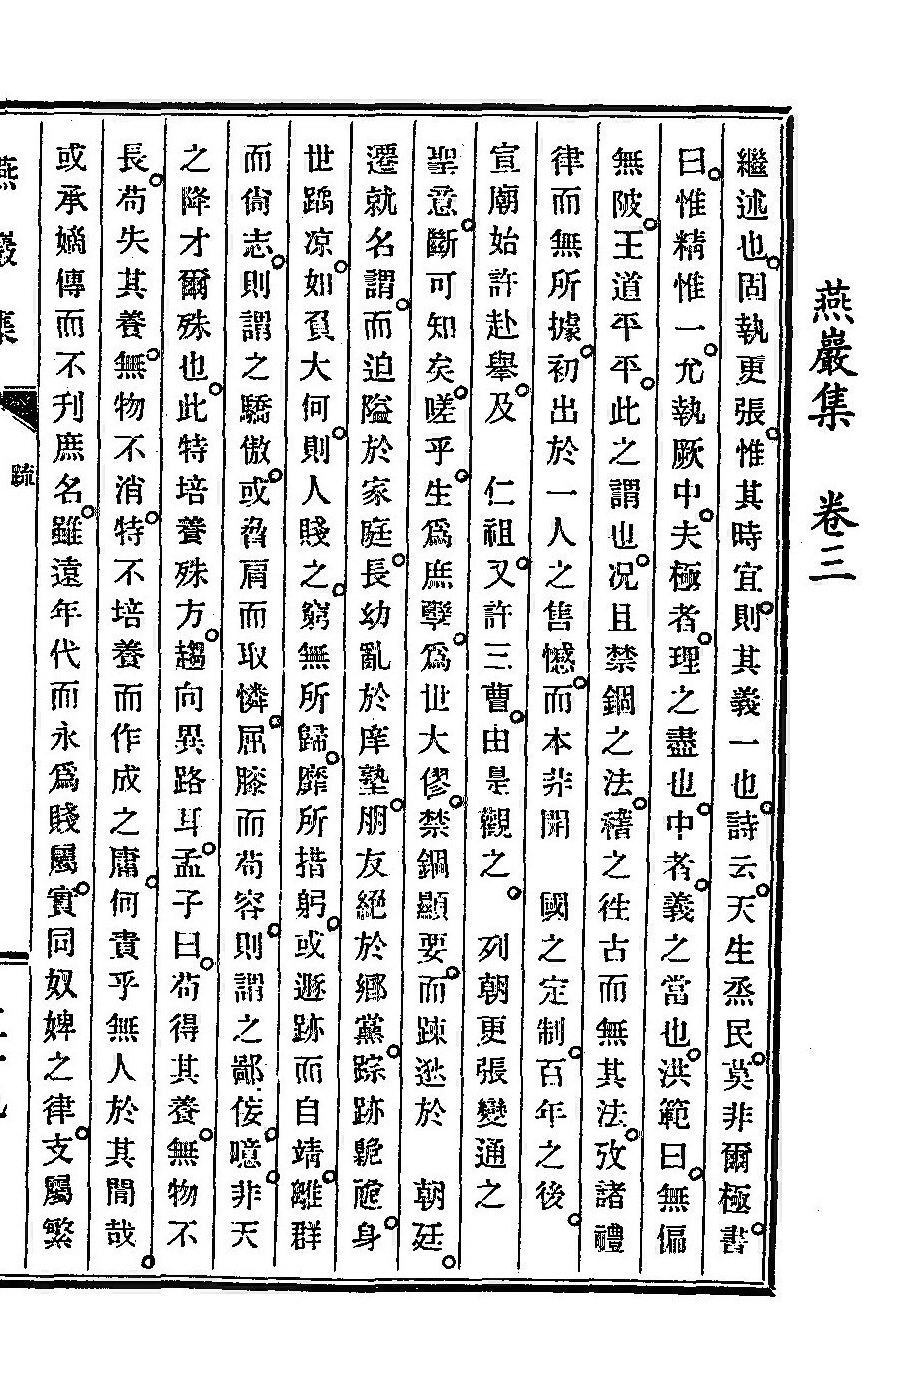 燕巖集 卷三
繼述也。固執更張。惟其時宜。則其義一也。詩云。天生烝民。莫非爾極。書
曰。惟精惟一。允執厥中。夫極者。理之盡也。中者。義之當也。洪範曰。無偏
無陂。王道平平。此之謂也。况且禁錮之法。稽之徃古而無其法。攷諸禮
律而無所據。初出於一人之售憾。而本非開 國之定制。百年之後。
宣廟始許赴擧。及 仁祖。又許三曹。由是觀之。 列朝更張變通之
聖意。斷可知矣。嗟乎。生爲庶孼。爲世大僇。禁錮顯要。而踈迯於 朝廷。
遷就名謂。而迫隘於家庭。長幼亂於庠塾。朋友絕於鄕黨。踪跡臲卼。身
世踽凉。如負大何。則人賤之。窮無所歸。靡所措躬。或遯跡而自靖。離群
而尙志。則謂之驕傲。或脅肩而取憐。屈膝而苟容。則謂之鄙佞。噫。非天
之降才爾殊也。此特培養殊方。趨向異路耳。孟子曰。苟得其養。無物不
長。苟失其養。無物不消。特不培養而作成之庸。何貴乎無人於其間哉。
或承嫡傳而不刋庶名。雖遠年代而永爲賤屬。實同奴婢之律。支屬繁
燕巖集
疏